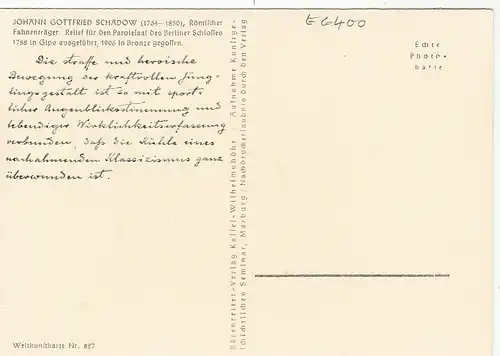 JOHANN GOTTFRIED SCHADOW (1764–1850), Römischer
Fahnenträger. Relief für den Parolesaal des Berliner Schlosses
1788 in Gips ausgeführt, 1906 in Bronze gegossen.
Die straffe und heroische
Bewegung des kraftvollen Jüng-
lingsgestalt ist so mit sport-
licher Augenblicksstimmung und
lebendiger Wirklichkeitserfassung
verbunden, daß die Kühle eines
nachahmenden Klassizismus ganz
überwunden ist.
Weltkunstkarte Nr. 827
Bärenreiter-Verlag Kassel-Wilhelmshöhe / Aufnahme Kunstge-
schichtliches Seminar, Marburg / Nachdruckerlaubnis durch den Verlag
E 6400
Echte
Photo-
karte